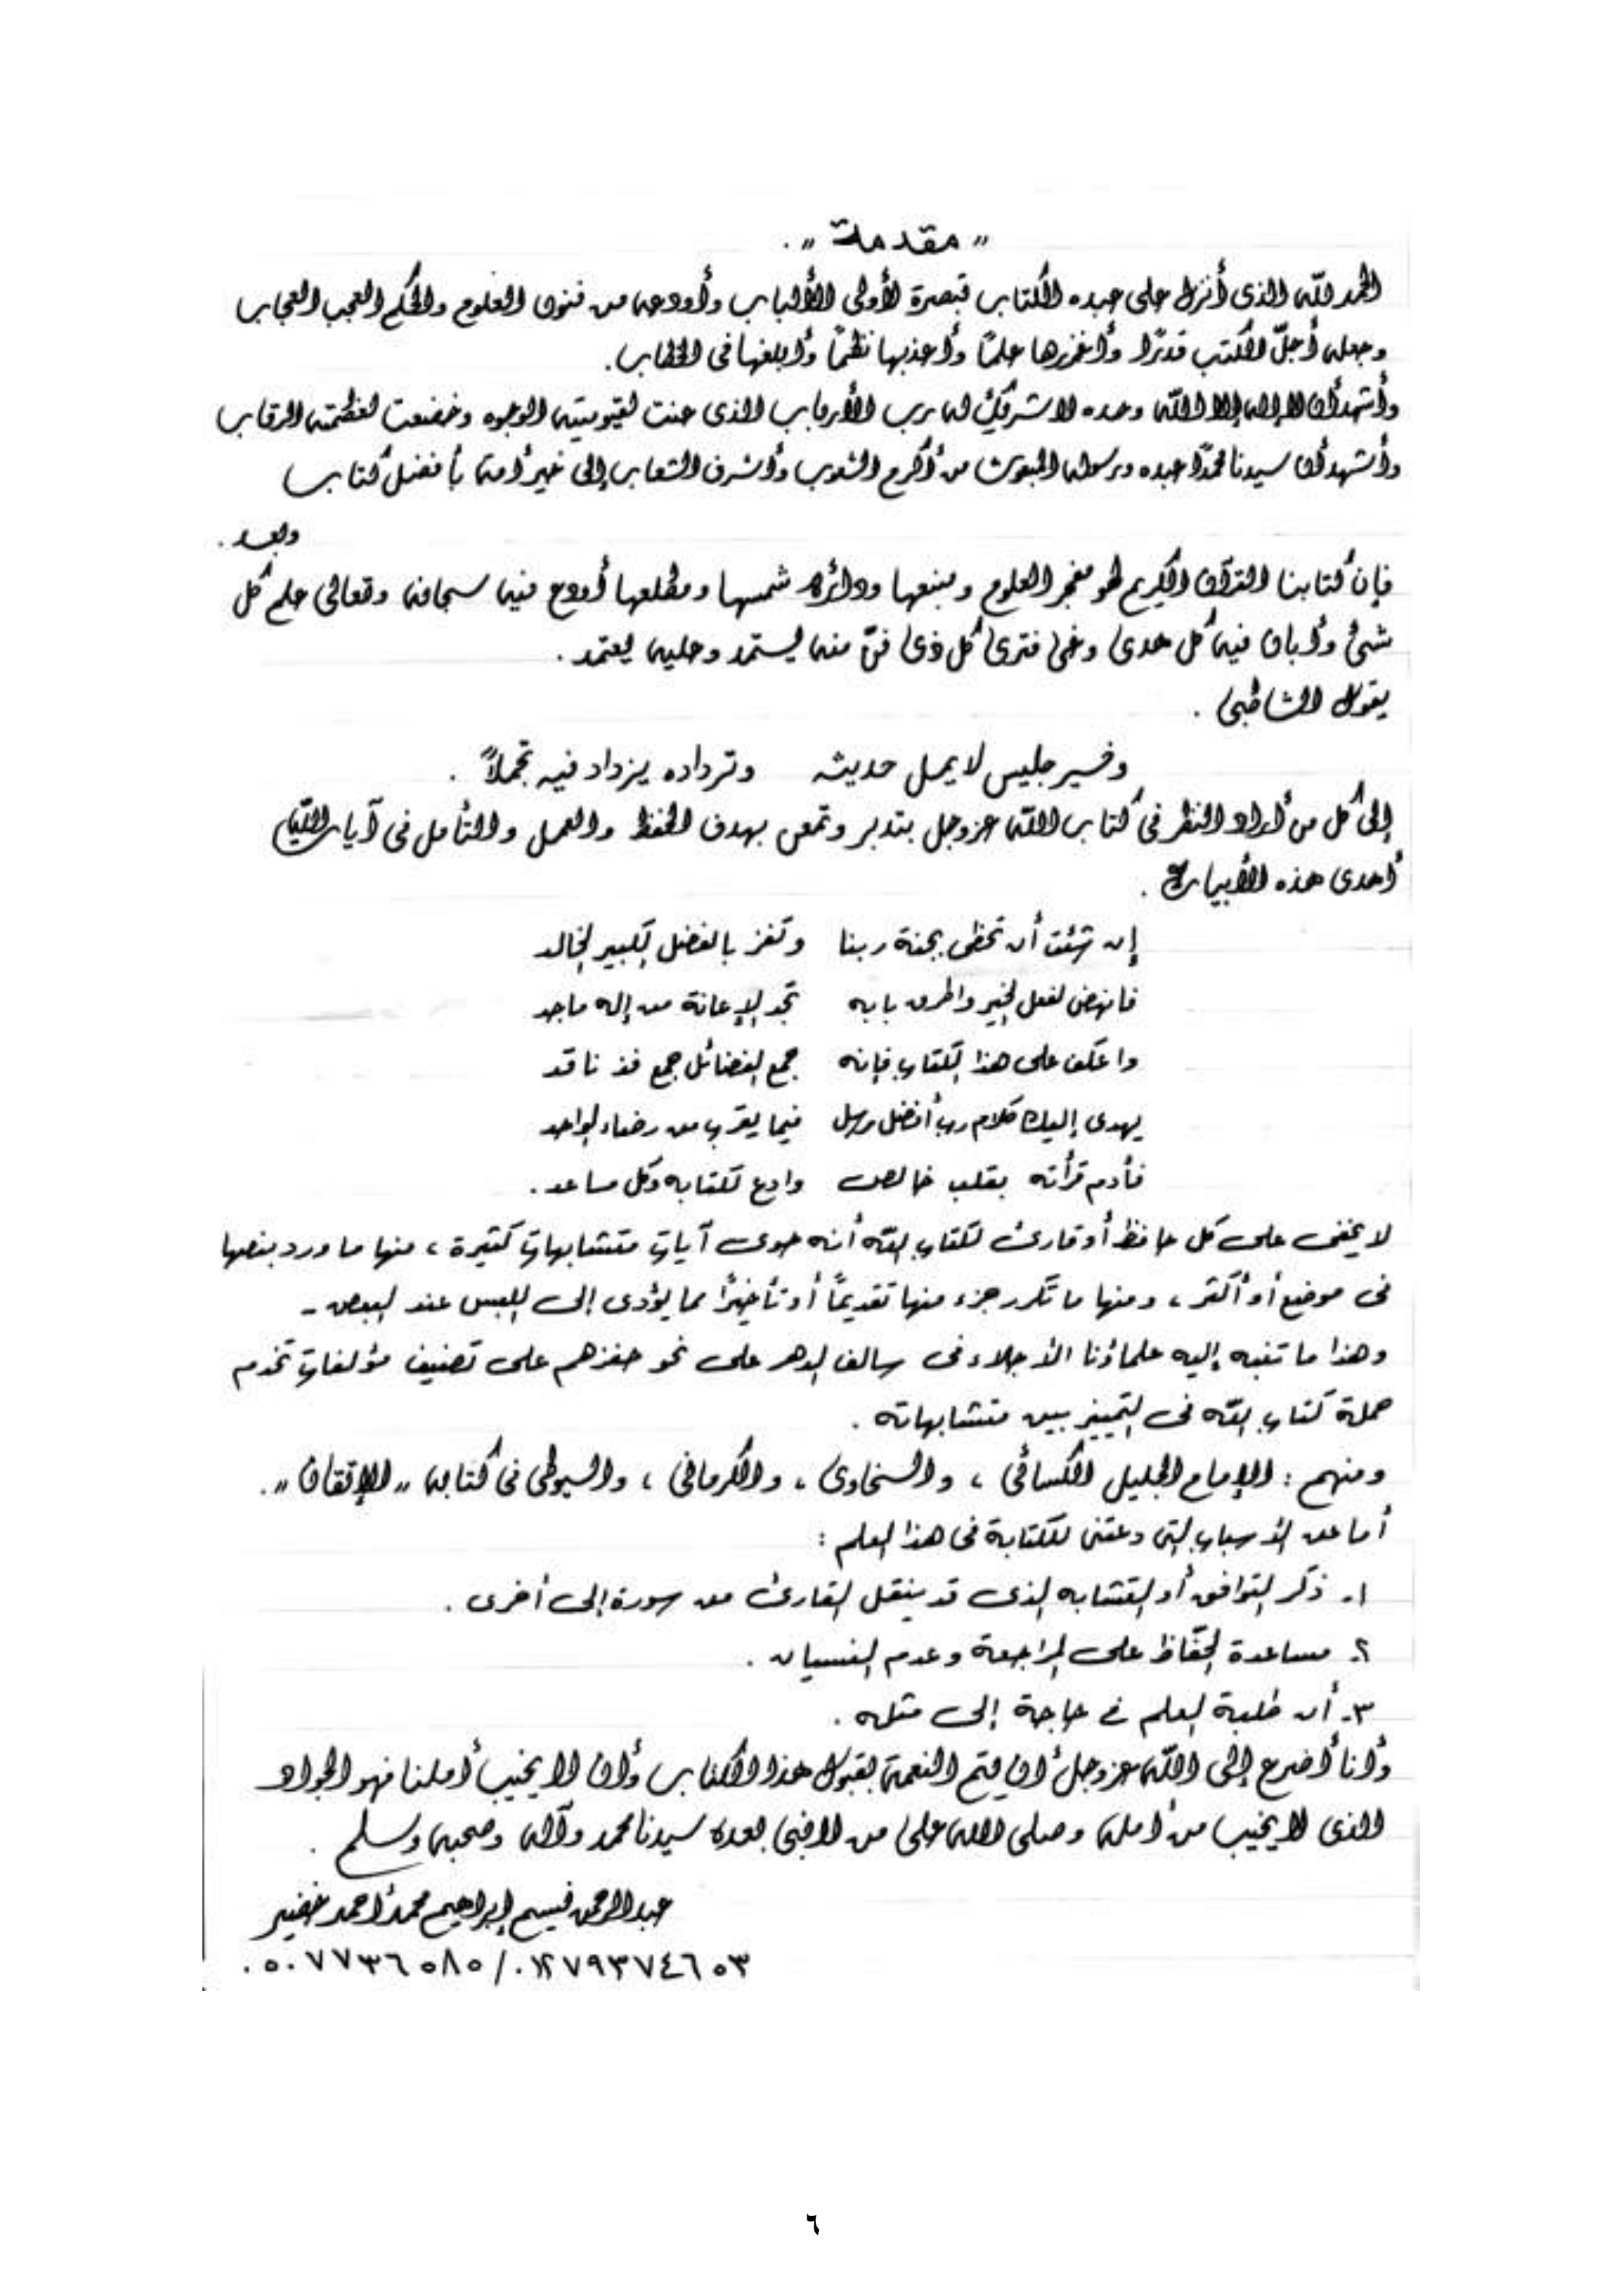 "مقدمة".
الحمد لله الذى أنزل على عبده الكتاب تبصرة لأولى الألباب وأودعه من فنون العلوم والحكم العجب العجاب
وجعله أجلّ الكتب قدرًا وأغزرها علمًا وأعذبها نظمًا وأبلغها فى الخطاب.
وأشهد أن لا إله إلا الله وحده لا شريك له رب الأرباب الذى عنت لقيوميته الوجوه وخضعت لعظمته الرقاب
وأشهد أن سيدنا محمدًا عبده ورسوله المبعوث من أكرم الشعوب وأشرف الشعاب إلى خير أمة بأفضل كتاب
وبعد.
فإن كتابنا القرآن الكريم لهو مفجر العلوم ومنبعها ودائرة شمسها ومطلعها أودع فيه سبحانه وتعالى علم كل
شئ وأبان فيه كل هدى وغى فترى كل ذى فنّ منه يستمد وعليه يعتمد.
يقول الشاطبى.
وخير جليس لا يمل حديثه وترداده يزداد فيه تجملاً.
إلى كل من أراد النظر فى كتاب الله عز وجل بتدبر وتمعن بهدف الحفظ والعمل والتأمل فى آيات الله
أهدى هذه الأبيات.
إن شئت أن تحظى بجنة ربنا وتفز بالفضل الكبير الخالد
فانهض لفعل الخير واطرق بابه تجد الإعانة من إله ماجد
واعكف على هذا الكتاب فإنه جمع الفضائل جمع فذ ناقد
يهدى إليك كلام رب أفضل مرسل فيما يقرب من رضاء الواحد
فأدم قرأته بقلب خالص وادع لكتابه وكل مساعد.
لا يخفى على كل حافظ أو قارئ لكتاب الله أنه حوى آيات متشابهات كثيرة، منها ما ورد بنصها
فى موضع أو أكثر، ومنها ما تكرر جزء منها تقديمًا أو تأخيرًا مما يؤدى إلى اللبس عند البعض -
وهذا ما تنبه إليه علماؤنا الأجلاء فى سالف الدهر على نحو حفزهم على تصنيف مؤلفات تخدم
حملة كتاب الله فى التمييز بين متشابهاته.
ومنهم: الإمام الجليل الكسائى، والسخاوى، والكرمانى، والسيوطى فى كتابه "الإتقان".
أما عن الأسباب التى دعتنى للكتابة فى هذا العلم:
١- ذكر التوافق أو التشابه الذى قد ينقل القارئ من سورة إلى أخرى.
٢- مساعدة الحفّاظ على المراجعة وعدم النسيان.
٣- أن طلبة العلم فى حاجة إلى مثله.
وأنا أضرع إلى الله عز وجل أن يتم النعمة بقبول هذا الكتاب وأن لا يخيب أملنا فهو الجواد
الذى لا يخيب من أمله وصلى الله على من لا نبى بعده سيدنا محمد وآله وصحبه وسلم.
عبدالرحمن نسيم إبراهيم محمد أحمد خضير
٠٥٠٧٧٣٦٥٨٥/٠١٢٧٩٣٧٤٦٥٣
٦